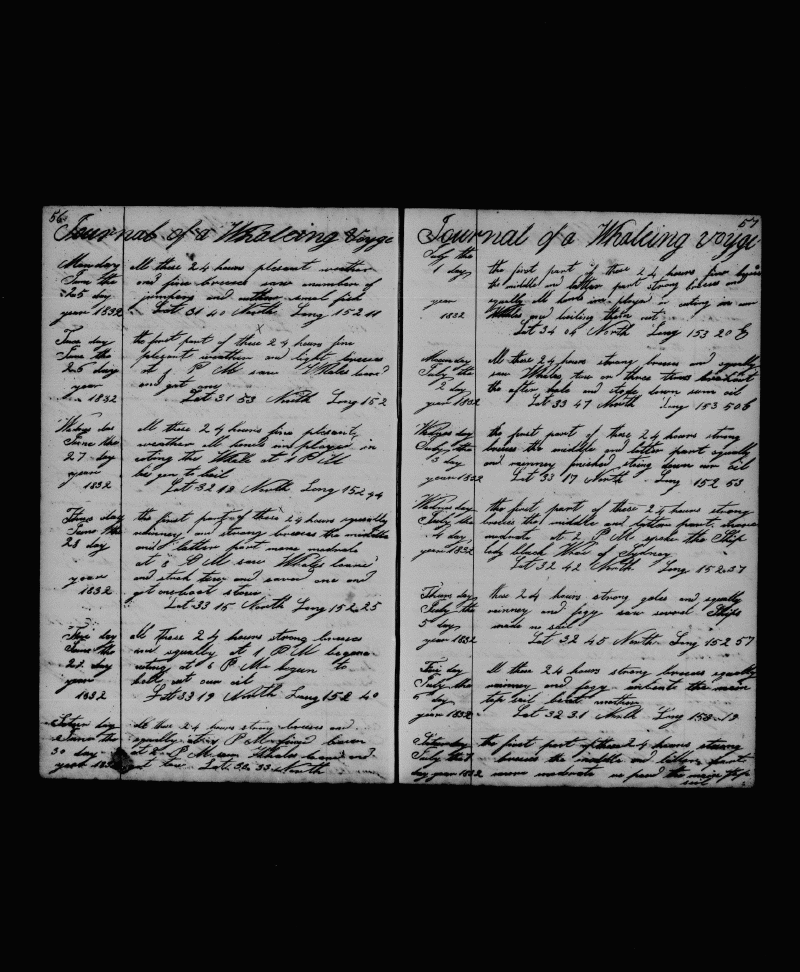 56
Journal of a Whaleing Voyge
Monday All these 24 hours plesent weather
June the and fine breeses saw a number of
25 day jumpers and small fish
year 1832 Lat 31 40 North Long 152 11
Tuse day the first part of these 24 hours fine
June the plesent weather and light breeses
26 day at P M saw Whales
year and got one
1832 Lat 31 53 North Long 152
Wedns day All these 24 hours fine plesent
June the weather all hands imployed in
27 day coting the Whale at 1 P M
year be gun to boil
1832 Lat 32 18 North Long 152 44
Thurs day the first part of these 24 hours squally
June the rainney and strong breeses the middle
28 day and latter part more moderate
at P M saw Whales
year and struck three and saved one and
1832 got one boat stove
Lat 33 15 North Long 152 25
Frie day All these 24 hours strong breeses
June the and squally at 1 P M begun
29 day coting at 6 P M begun to
year boil out our oil
1832 Lat 33 19 North Long 152 40
Satur day All these 24 hours strong breeses and
June the squally P M
30 day at P M saw Whales and
year 1832 got two Lat 32 33 North
57
Journal of a Whaleing voyge
July the the first part of these 24 hours fine
1 day the middle and latter part strong breeses and
year squally all hands imployed in coting in our
1832 Whales and boiling them out
Lat 34 04 North Long 153 20 E
Monday All these 24 hours strong breeses and squally
July the saw Whales two or three times
2 day the after hole and down sum oil
year 1832 Lat 33 47 North Long 153 50 E
the first part of these 24 hours strong
July the breeses the middle and latter part squally
3 day and rainney finished stoing down our oil
year 1832 Lat 33 17 North Long 152 53
Wednes day the first part of these 24 hours strong
July the breeses the middle and latter part more
4 day modrate at 2 P M spoke the Ship
year 1832 lady black Wear of Sydney
Lat 32 42 North Long 152 37
Thurs day these 24 hours strong gales and squally
July the rainney and fogy saw sevral Ships
5 day made no sail
year 1832 Lat 32 45 North Long 152 57
Frie day All these 24 hours strong breeses squally
July the rainney and fogy the main
6 day top sail
year 1832 Lat 32 31 North Long 153 19
Saturday the first part of these 24 hours strong
July the 7 breeses the middle and latter part
day year 1832 more modrate the main top
sail